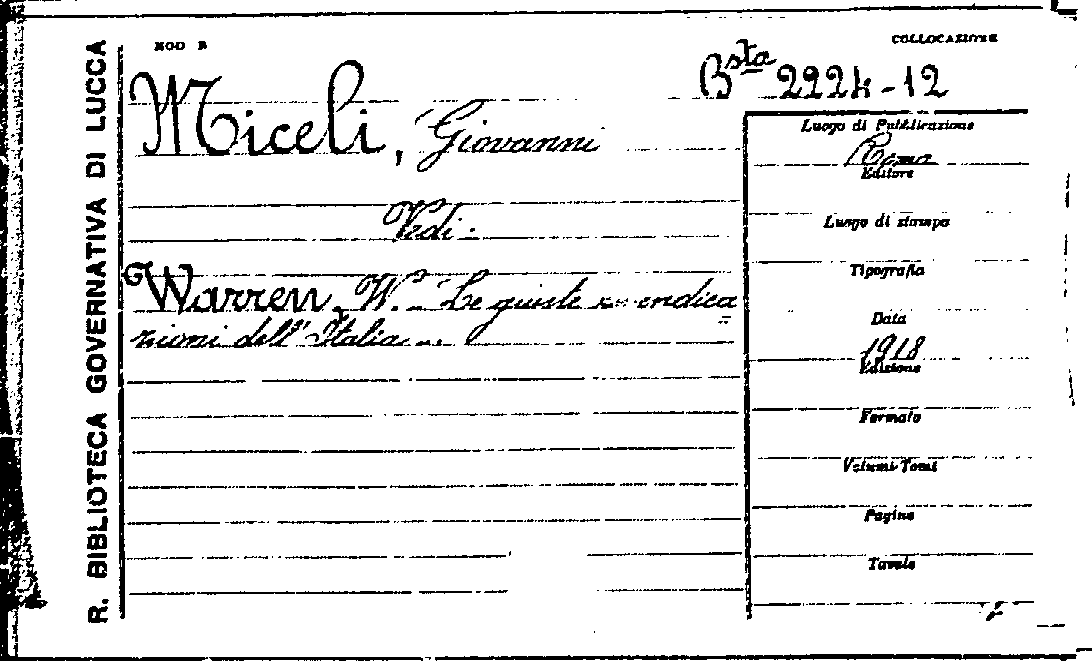 R. BIBLIOTECA GOVERNATIVA DI LUCCA
MOD B
COLLOCAZIONE
Bsta 2224-12
Miceli, Giovanni
Vedi.
Warren, W. Le giuste rivendica
=
zioni dell'Italia...
Luogo di Pubblicazione
Roma
Editore
Luogo di stampa
Tipografia
Data
1918
Edizione
Formato
Volumi-Tomi
Pagine
Tavole